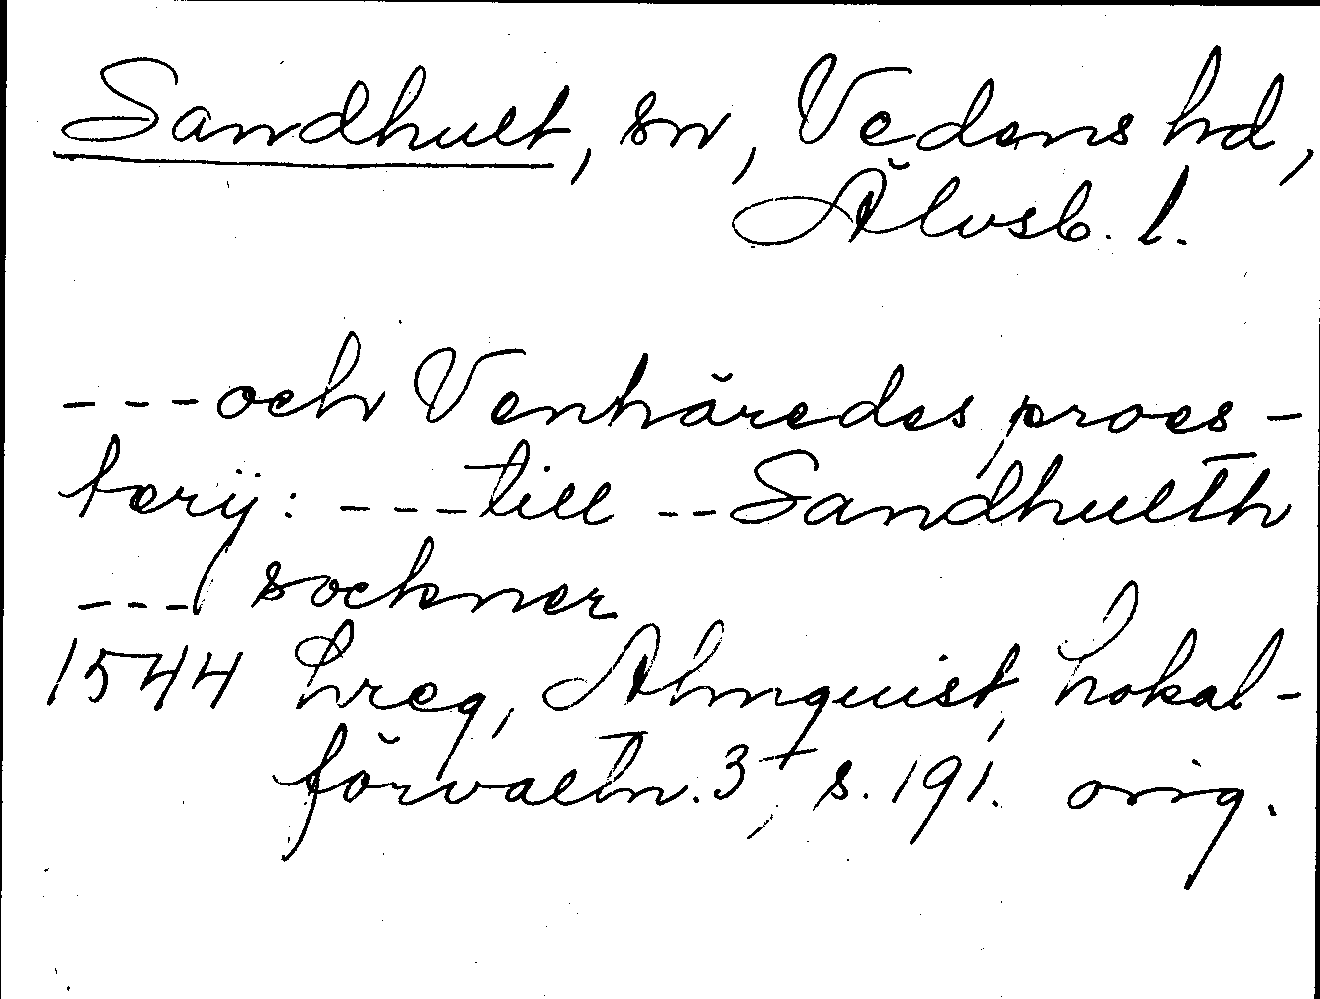 Sandhult, sn, Vedens hd,
Älvsb. l.
---och Venhäredes proes-
terij: ---till --Sandhullth
--- sockner
1544 Lreg, Almquist, Lokal-
förvaltn. 3+, s. 191. orig.